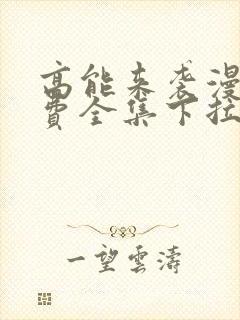 高能来袭漫
费全集下拉
一望雲濤